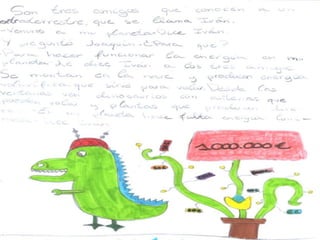 Son tres amigos que conocen a un
extraterrestre, que se llama Iván.
-Vamos a mi planeta. Dice Iván.
Y pregunto Joaquin. ¿Para que?
Para hacer funcionar la energia en mi
planeta les dice Iván. A los tres amigos.
Se montan en la nave y producen energia
que sirve para volar. Desde las
ventanas ven dinosaurios con que
pueden volar y plantas que
En mi planeta hace falta energia
1.000.000€